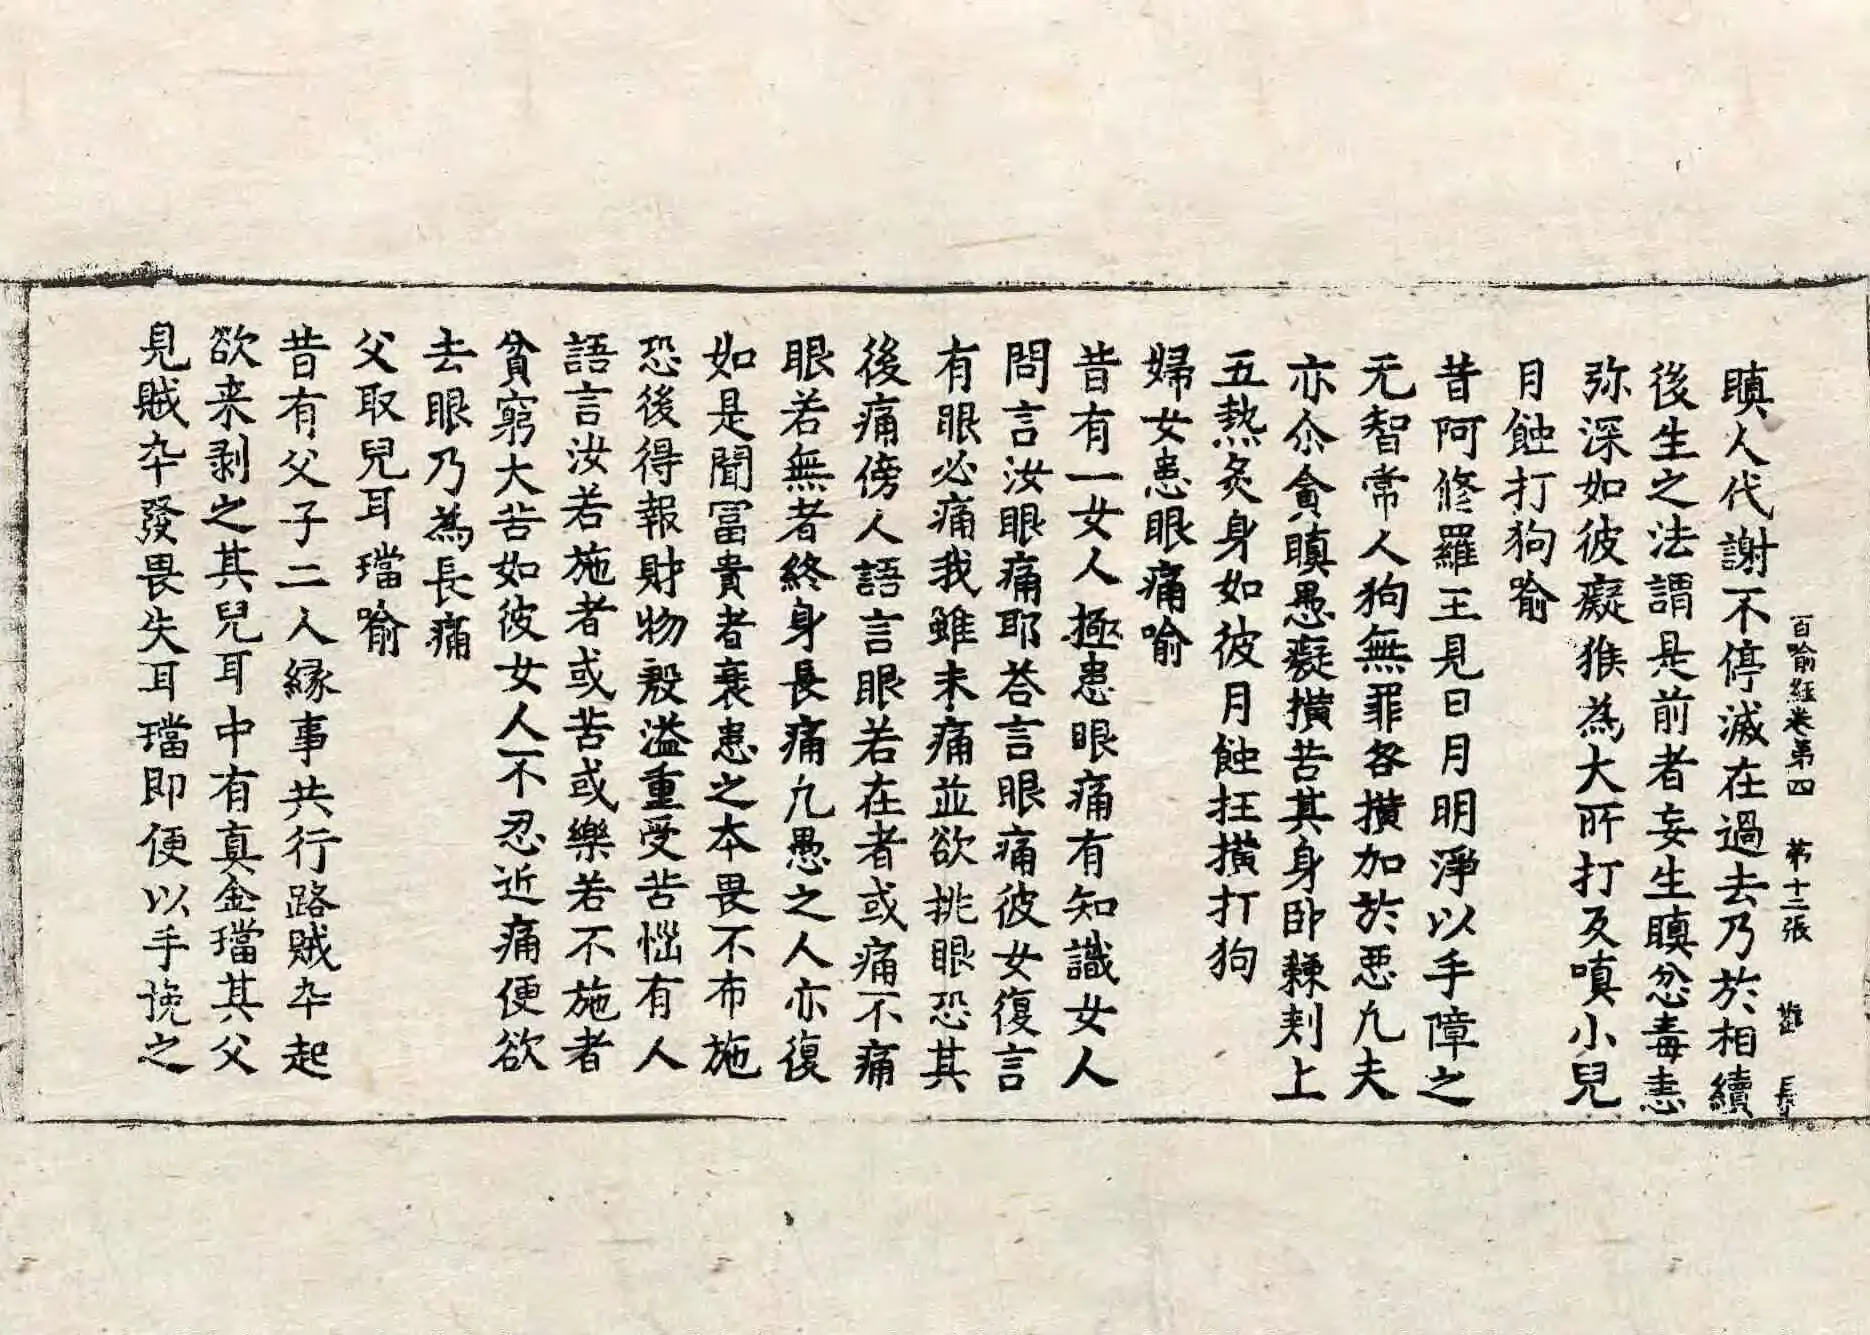 百喻經卷第四　第十三張
瞋人代謝不停滅在過去乃於相續
後生之法謂是前者妄生瞋忿毒恚
弥深如彼癡猴為大所打反嗔小兒
月蝕打狗喻
昔阿修羅王見日月明淨以手障之
无智常人狗無罪咎撗加於惡凡夫
亦尒貪瞋愚癡撗苦其身卧棘刾上
五熱炙身如彼月蝕抂撗打狗
婦女患眼痛喻
昔有一女人極患眼痛有知識女人
問言汝眼痛耶荅言眼痛彼女復言
有眼必痛我雖未痛並欲挑眼恐其
後痛傍人語言眼若在者或痛不痛
眼若無者終身長痛凡愚之人亦復
如是聞冨貴者衰患之本畏不布施
恐後得報財物殷溢重受苦惱有人
語言汝若施者或苦或樂若不施者
貧窮大苦如彼女人不忍近痛便欲
去眼乃為長痛
父取兒耳璫喻
昔有父子二人緣事共行路賊卒起
欲来剥之其兒耳中有真金璫其父
見賊卒發畏失耳璫即便以手挽之